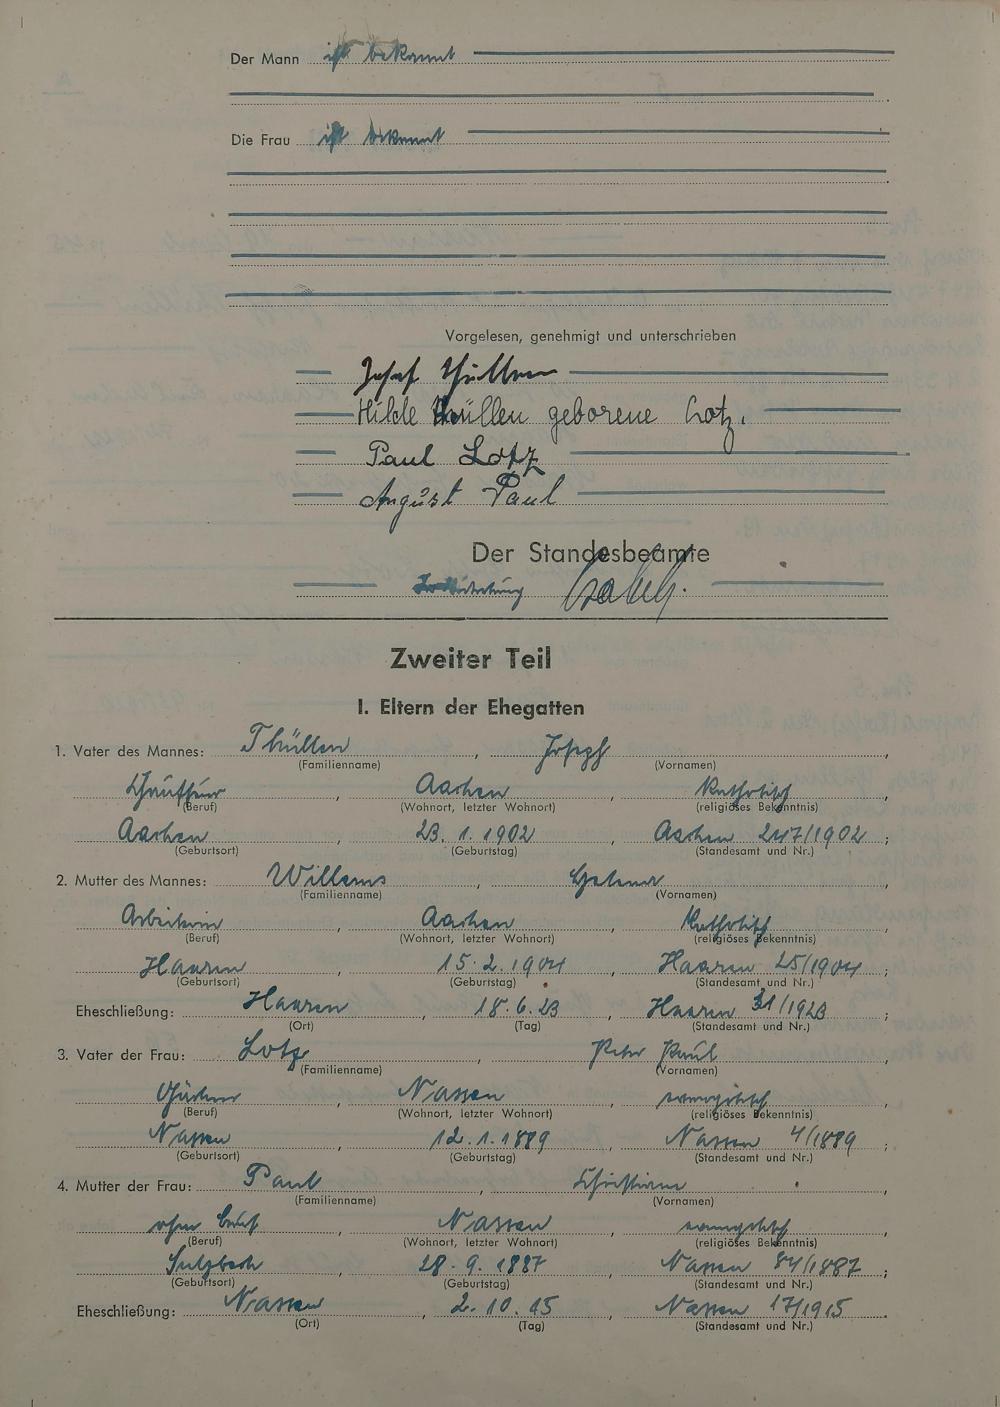 Der Mann ist bekannt
Die Frau ist bekannt
Vorgelesen, genehmigt und unterschrieben
Josef Thüllen
Hilde Thüllen geborene Lotz.
Paul Lotz
August Paul
Der Standesbeamte
In Vertretung
Zweiter Teil
I. Eltern der Ehegatten
1. Vater des Mannes: Thüllen, Joseph,
(Familienname) (Vornamen)
Chauffeur, Aachen, katholisch
(Beruf) (Wohnort, letzter Wohnort) (religiöses Bekenntnis)
Aachen, 23. 1. 1902, Aachen 247/1902;
(Geburtsort) (Geburtstag) (Standesamt und Nr.)
2. Mutter des Mannes: Willems,
(Familienname) (Vornamen)
Arbeiterin, Aachen, katholisch,
(Beruf) (Wohnort, letzter Wohnort) (religiöses Bekenntnis)
Haaren, 15. 2. 1904, Haaren 25/1904;
(Geburtsort) (Geburtstag) (Standesamt und Nr.)
Eheschließung: Haaren, 18. 6. 23, Haaren 31/1923;
(Ort) (Tag) (Standesamt und Nr.)
3. Vater der Frau: Lotz, Peter Paul,
(Familienname) (Vornamen)
Nassau, evangelisch,
(Beruf) (Wohnort, letzter Wohnort) (religiöses Bekenntnis)
Nassau, 12. 1. 1889, Nassau 4/1889;
(Geburtsort) (Geburtstag) (Standesamt und Nr.)
4. Mutter der Frau: Paul, Christiane,
(Familienname) (Vornamen)
ohne Beruf, Nassau, evangelisch,
(Beruf) (Wohnort, letzter Wohnort) (religiöses Bekenntnis)
Sulzbach, 28. 9. 1887, Nassau 84/1887;
(Geburtsort) (Geburtstag) (Standesamt und Nr.)
Eheschließung: Nassau, 2. 10. 15, Nassau 17/1915,
(Ort) (Tag) (Standesamt und Nr.)